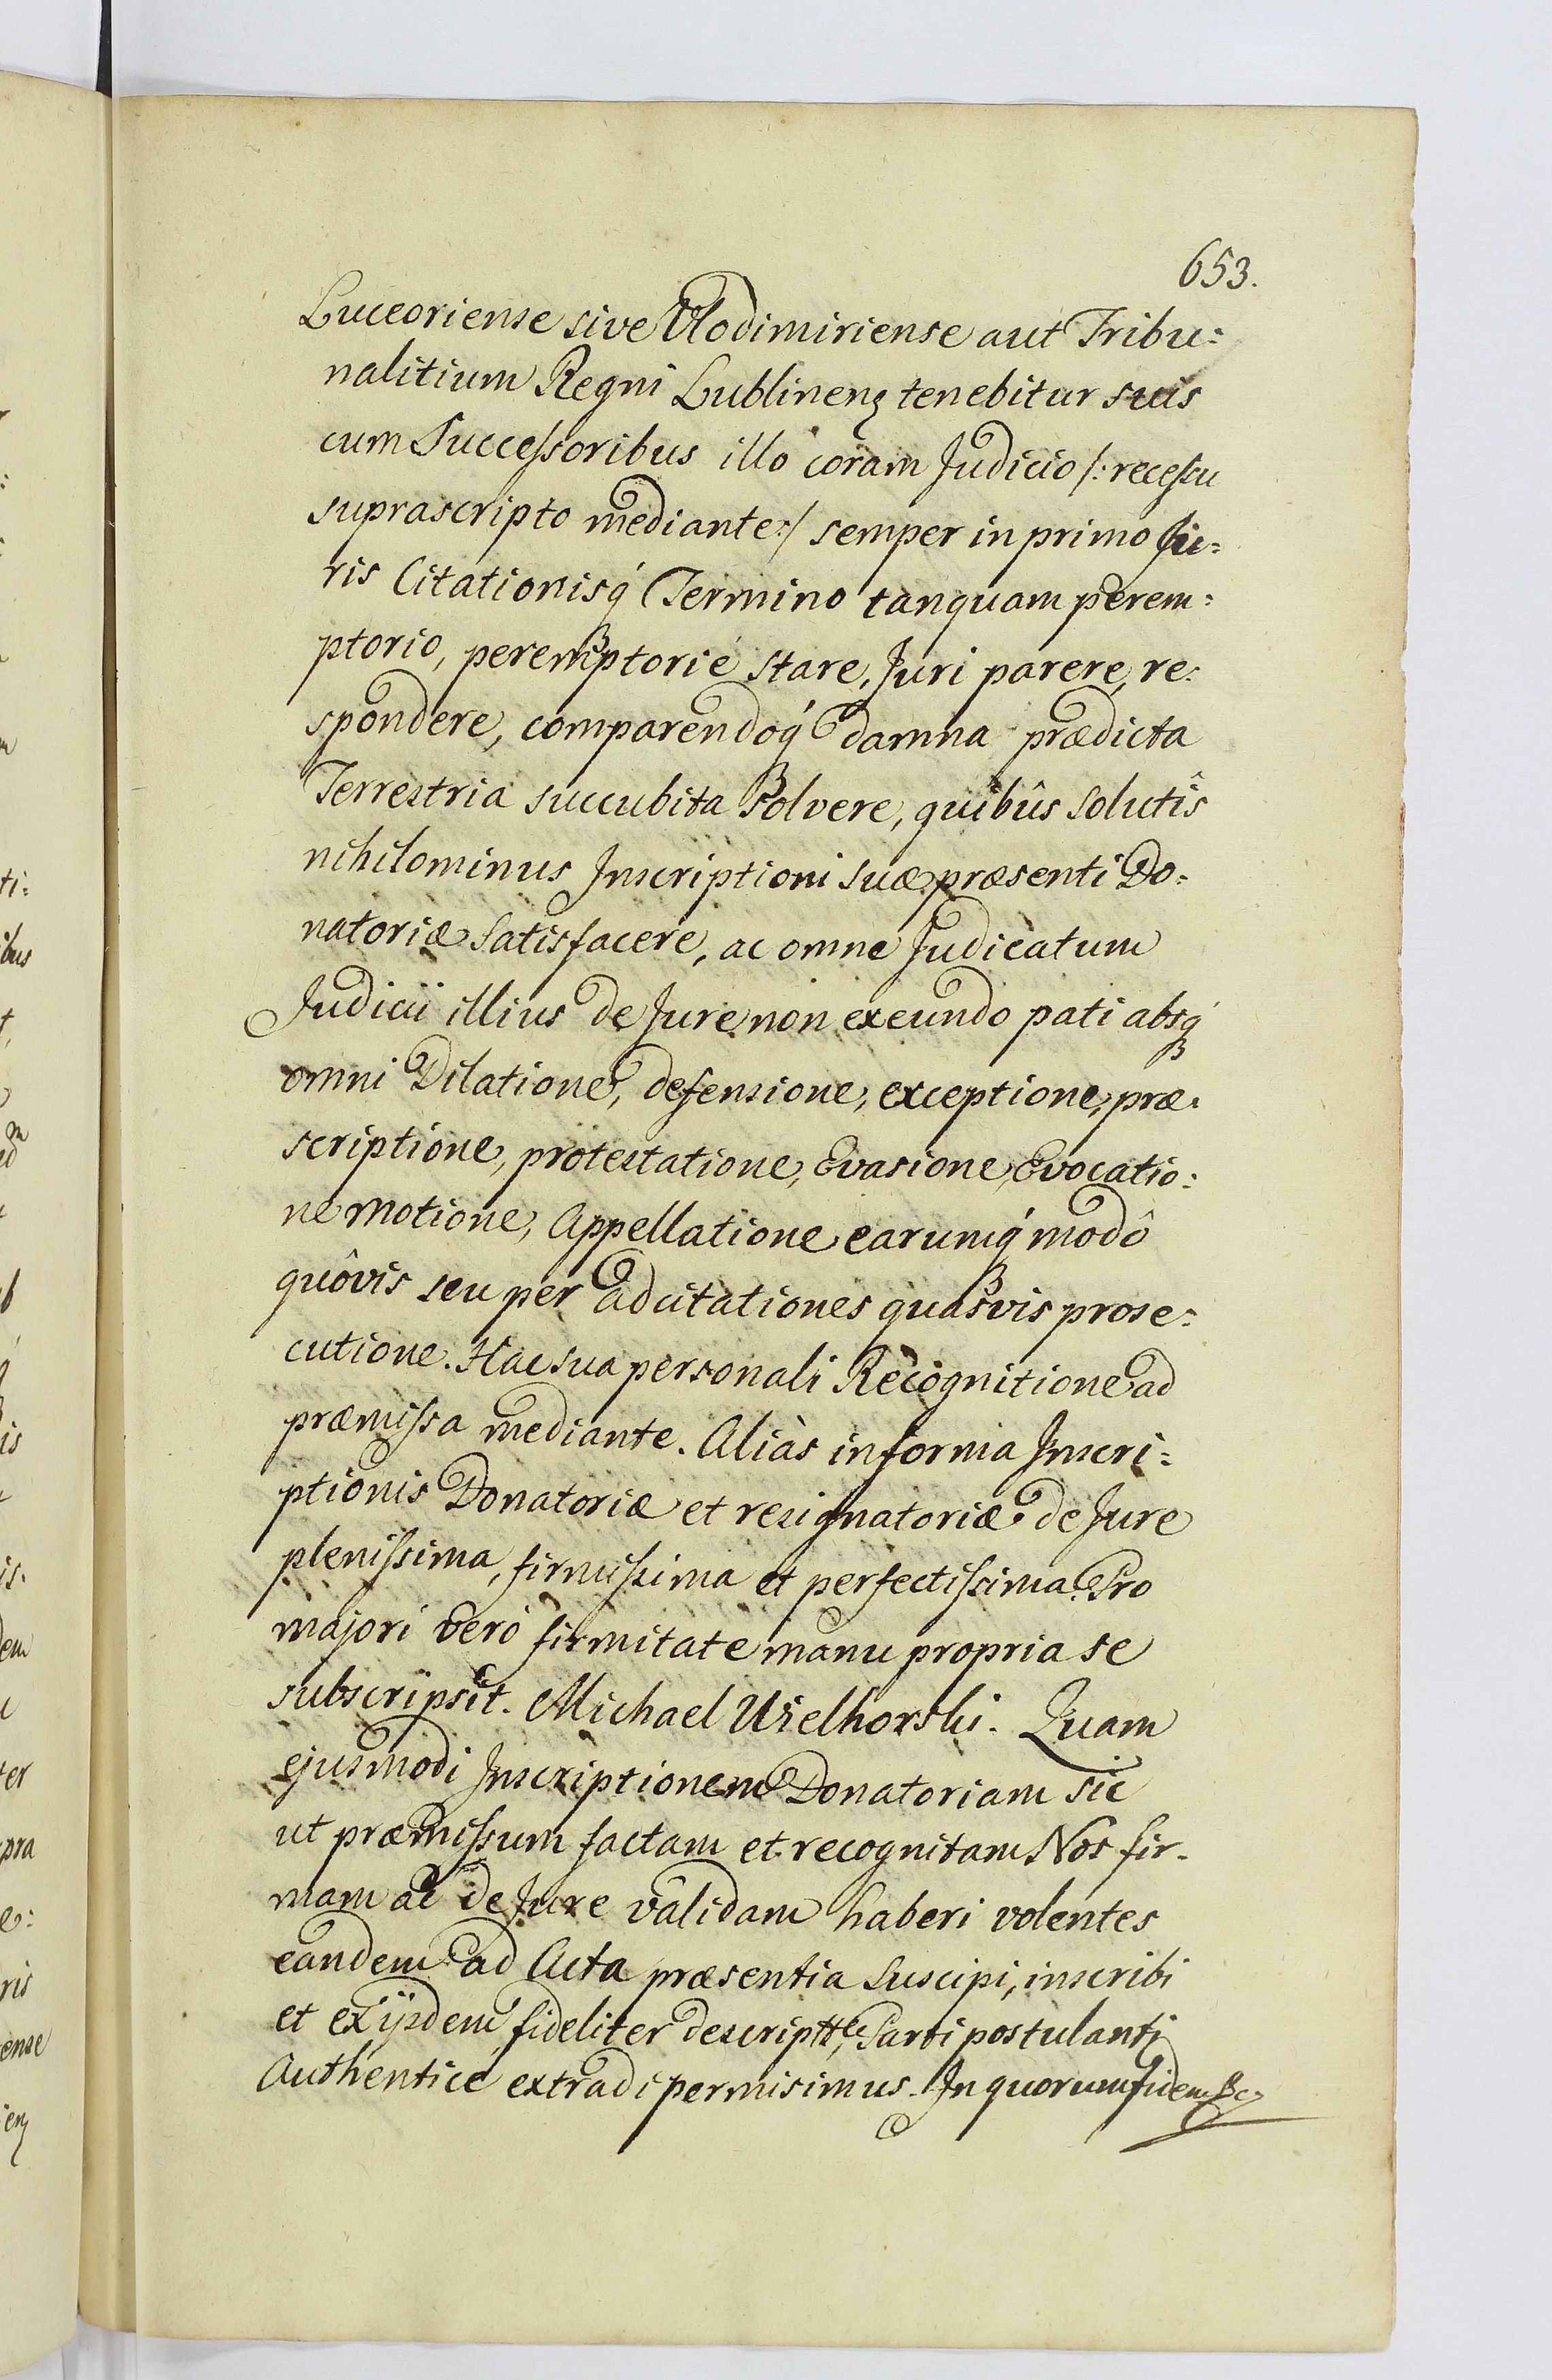 653.
Luceoriense sive Vlodimiriense aut Tribu:
nalitium Regni Lublinenꝫ tenebitur suis
cum Successoribus illo coram Judicio /: recessu
suprascripto mediante :/ semper in primo Ju:
ris Citationisq́ Termino tanquam perem:
ptorio, peremptorié stare, Juri parere, re:
spondere, comparendoq́ damna prædicta
Terrestria succubita solvere, quibûs solutîs
nihilominus Inscriptioni suæ præsenti Do:
natoriæ satisfacere, ac omne Judicatum
Judicii illius de Jure non exeundo pati absq́
omni Dilatione, defensione, exceptione, præ:
scriptione, protestatione, Evasione, Evocatio:
ne motione, Appellatione earumq́ modô
quôvis seu per adcitationes quasvis prose:
cutione. Hac sua personali Recognitione ad
præmissa mediante. Aliàs in forma Inscri:
ptionis Donatoriæ et resignatoriæ de Jure
plenissima, firmissima et perfectissima. Pro
majori veró firmitate manu propria se
subscripsit. Michael Wielhorski. Quam
ejusmodi Inscriptionem Donatoriam sic
ut præmissum factam et recognitam Nos fir-
mam ac de Jure validam haberi volentes
eandem ad Acta præsentia suscipi, inscribi
et ex ijsdem fideliter descriptt Parti postulanti
Authentice extradi permisimus. In quorum fidem &c
ti:
ibus
t,
m
ub
is
is.
dem
ter
pra
e:
ris
ense
enꝫ